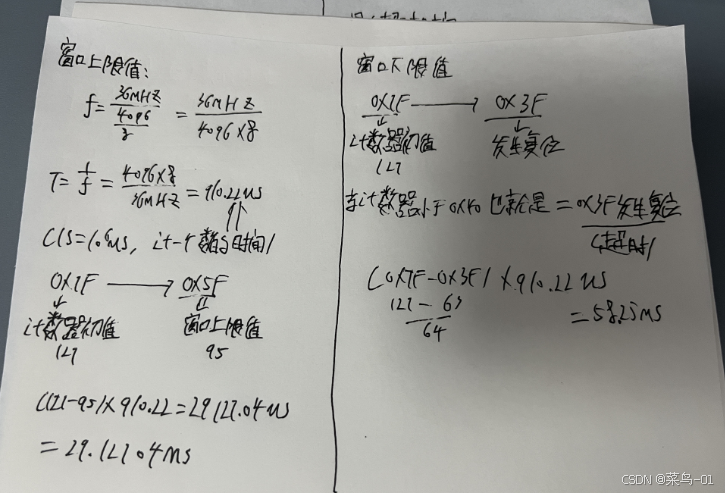 窗口上限值:
f = 36MHZ / (4096 / 8) = 36MHZ / 4096×8
T = 1/f = 4096×8 / 36MHZ = 910.22us
(1s=10⁶us, 计一个数的时间)
0x7F → 0x5F
计数器初值 窗口上限值
127 95
(127-95)×910.22=29127.04us
=29.12704ms
窗口下限值
0x7F → 0x3F
计数器初值 发生复位
127
当计数器小于0x40也就是=0x3F发生复位
(超时)
(0x7F-0x3F)×910.22us
127 - 63
64
=58.25ms
CSDN @菜鸟-01